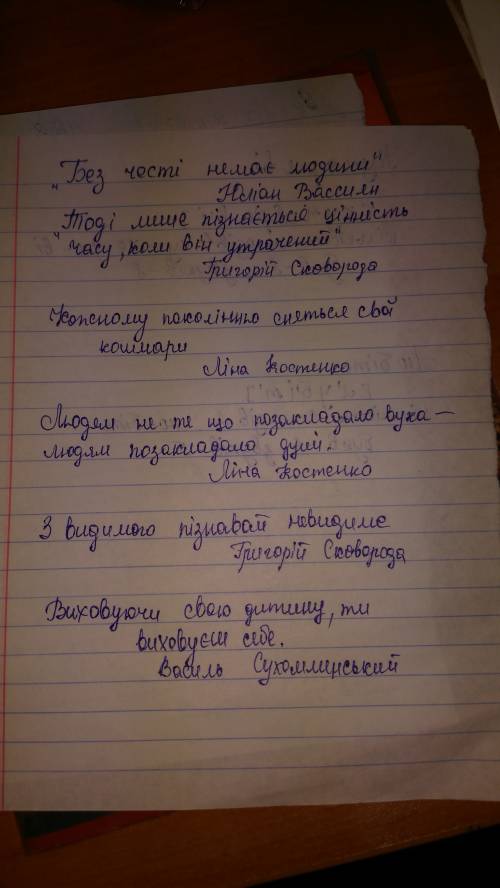 "Без честі немає людини"
Юліан Вассиян
"Тоді лише пізнається цінність
часу, коли він утрачений"
Григорій Сковорода
Кожному поколінню сняться свої
кошмари
Ліна Костенко
Людям не те що позакладало вуха —
людям позакладало душі.
Ліна Костенко
З видимого пізнавай невидиме
Григорій Сковорода
Виховуючи свою дитину, ти
виховуєш себе.
Василь Сухомлинський